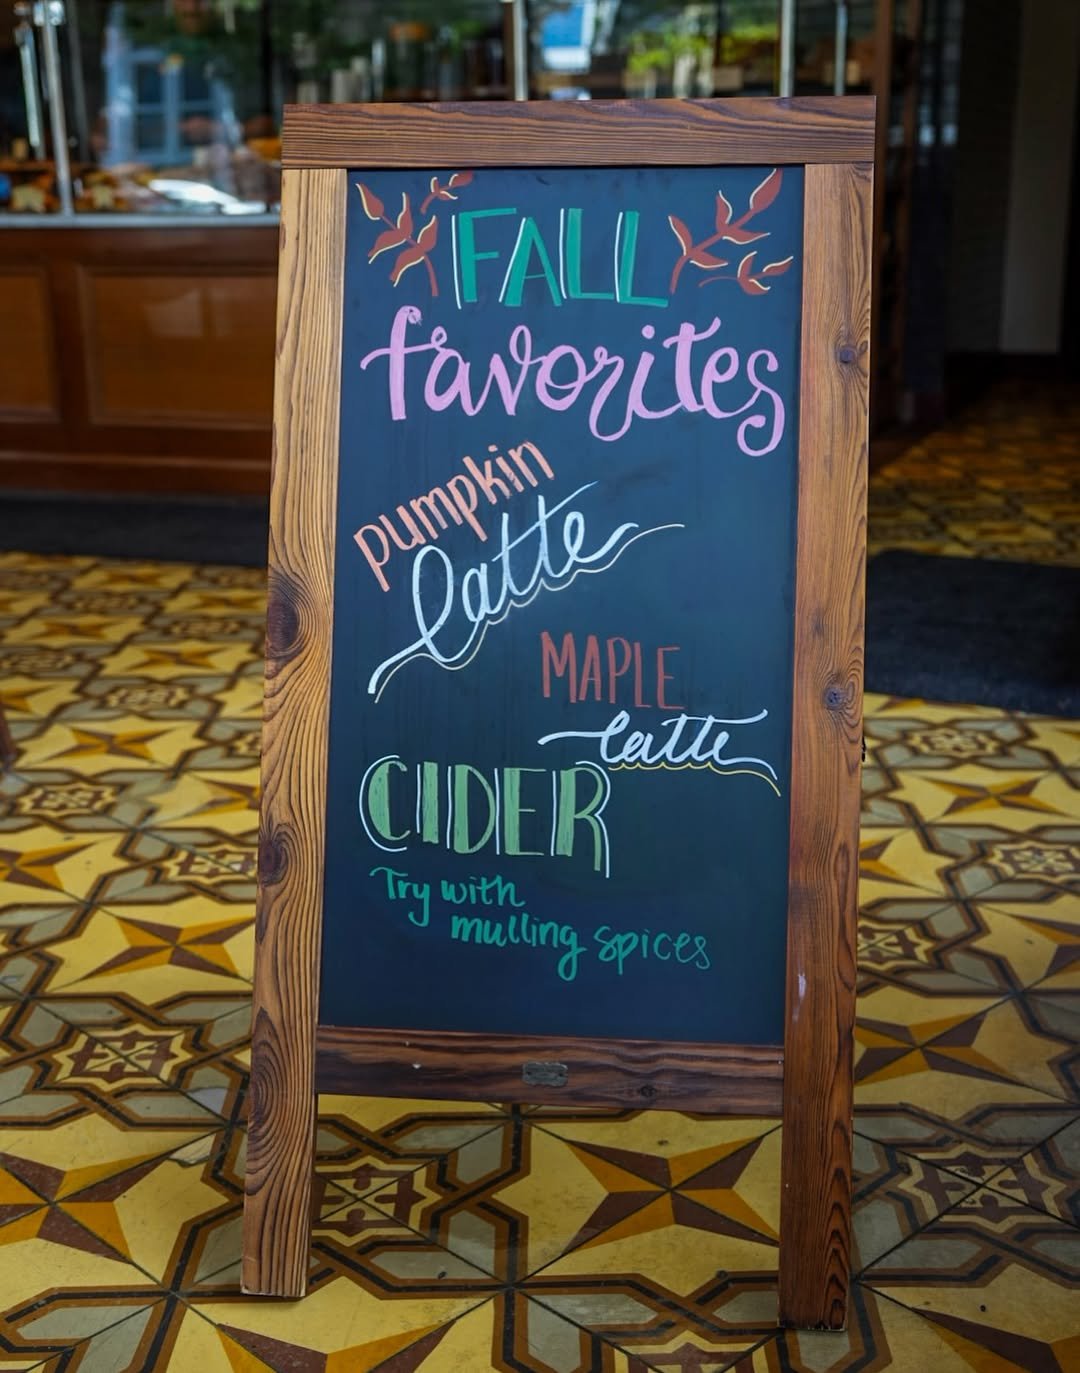 FALL
favorites
pumpkin
latte
MAPLE
latte
CIDER
Try with
mulling spices